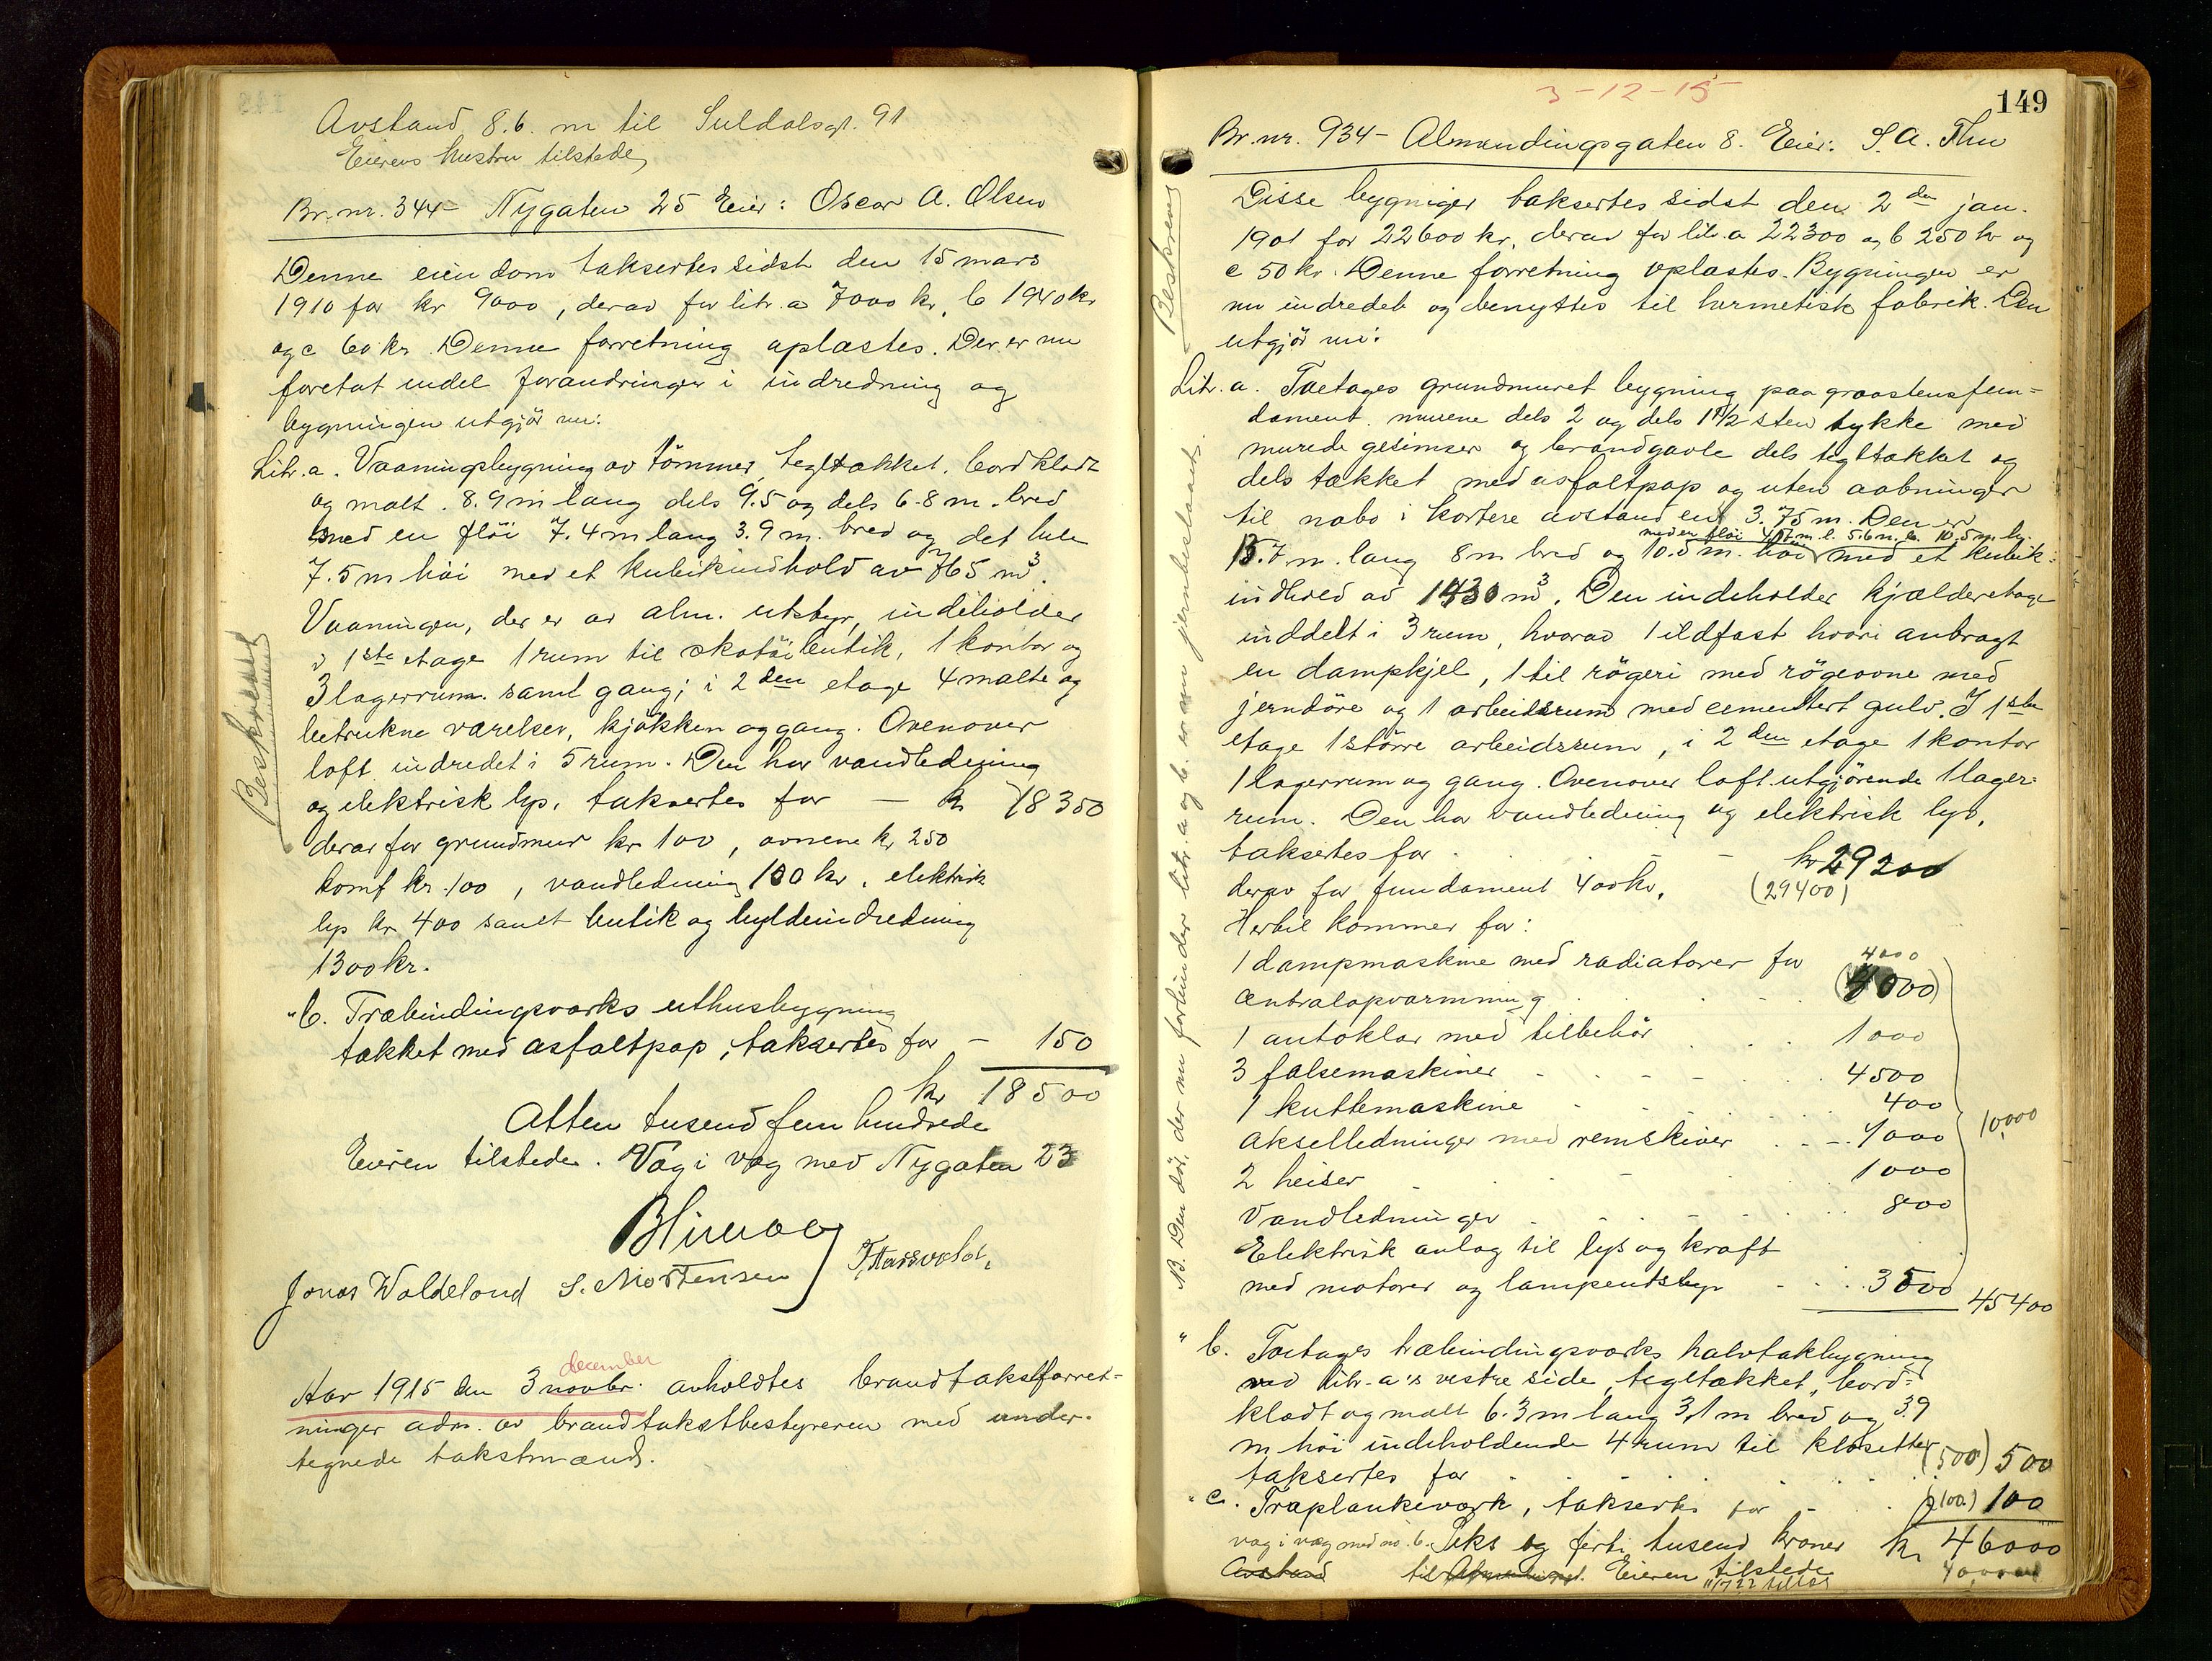 Avstand 8.6. m til Suldalsgt. 91
Eierens hustru tilstede
Br. nr. 344 - Nygaten 25 Eier: Oscar A. Olsen
Denne eiendom taksertes sidst den 15 mars
1910 for kr 9000, derav for litr. a 7000 kr, b 1940 kr
og c 60 kr. Denne forretning oplæstes. Der er nu
foretat endel forandringer i indredning og
bygningen utgjör nu:
Litr. a. Vaaningsbygning av tömmer, tegltækket, bordklædt
og malt. 8.9 m lang dels 9.5 og dels 6.8 m. bred
med en flöi 7.4 m lang 3.9 m. bred og det hele
7.5 m höi med et kubikindhold av 765 m³.
Vaaningen, der er av alm. utstyr, indeholder
i 1ste etage 1 rum til skotöibutik, 1 kontor og
3 lagerrum samt gang; i 2den etage 4 malte og
betrukne værelser, kjökken og gang. Ovenover
loft indredet i 5 rum. Den har vandledning
og elektrisk lys, taksertes for — kr 18350
derav for grundmur kr 100, ovnene kr 250
komf kr. 100, vandledning 100 kr, elektrisk
lys kr 400 samt butik og hyldeindredning
1300 kr.
" b. Træbindingsverks uthusbygning
tækket med asfaltpap, taksertes for - 150
kr 18500
Atten tusend fem hundrede
Eieren tilstede. Væg i væg med Nygaten 23
Beskrevet
Jonas Waldeland S. Mortensen
december
Aar 1915 den 3 novbr. avholdtes brandtakstforret-
ninger adm. av brandtakstbestyreren med under-
tegnede takstmænd.
3-12-15
149
Br. nr. 934 - Almendingsgaten 8. Eier: S. A. Thu
Disse bygninger taksertes sidst den 2den jan.
1901 for 22600 kr, derav for litr. a 22300 og b 250 kr og
c 50 kr. Denne forretning oplæstes. Bygningen er
nu indredet og benyttes til hermetisk fabrik. Den
utgjör nu:
Litr. a. Toetages grundmuret bygning paa graastensfun-
dament. murene dels 2 og dels 1 1/2 sten tykke med
murede gesimser og brandgavle dels tegltækket og
dels tækket med asfaltpap og uten aabninger
til nabo i kortere avstand end 3.75 m. Den er
med en flöi m. l. 5.6 m. b. 10.5 m. h.
15.7 m. lang 8 m bred og 10.5 m. höi med et kubik-
indhold av 1430 m³. Den indeholder kjælderetage
inddelt i 3 rum, hvorav 1 ildfast hvori anbragt
en dampkjel, 1 til rögeri med rögeovne med
jerndöre og 1 arbeidsrum med cementert gulv. I 1ste
etage 1 större arbeidsrum, i 2den etage 1 kontor
1 lagerrum og gang. Ovenover loft utgjörende 1 lager-
rum. Den har vandledning og elektrisk lys,
taksertes for - - kr 29200
derav for fundament 400 kr. (29400)
Hertil kommer for:
1 dampmaskine med radiatorer for 4000
centralopvarmning (4000)
1 autoklav med tilbehör 1000
3 falsemaskiner 4500
1 kuttemaskine 400
akselledninger med remskiver 1000
10,000
2 heiser 1000
Vandledninger 800
Elektrisk anlæg til lys og kraft
med motorer og lampeutstyr 3500
45400
" b. Toetages træbindingsverks halvtakbygning
ved litr. a's vestre side, tegltækket, bord-
klædt og malt 6.3 m lang 3.1 m bred og 3.9
m höi indeholdende 4 rum til klosetter
taksertes for (500) 500
" c. Træplankeverk, taksertes for - (100) 100
væg i væg med no. 6. Seks og förti tusend kroner kr 46000
Avstand til Eieren tilstede
Beskrevet
NB. Den dör, der nu forbinder litr. a og b. er nu jernbeslaat.